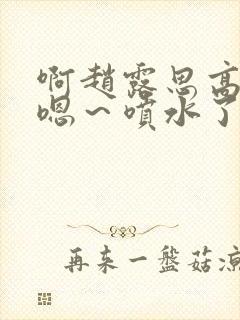 啊趙露思高
嗯～噴水了
再来一盤菇凉